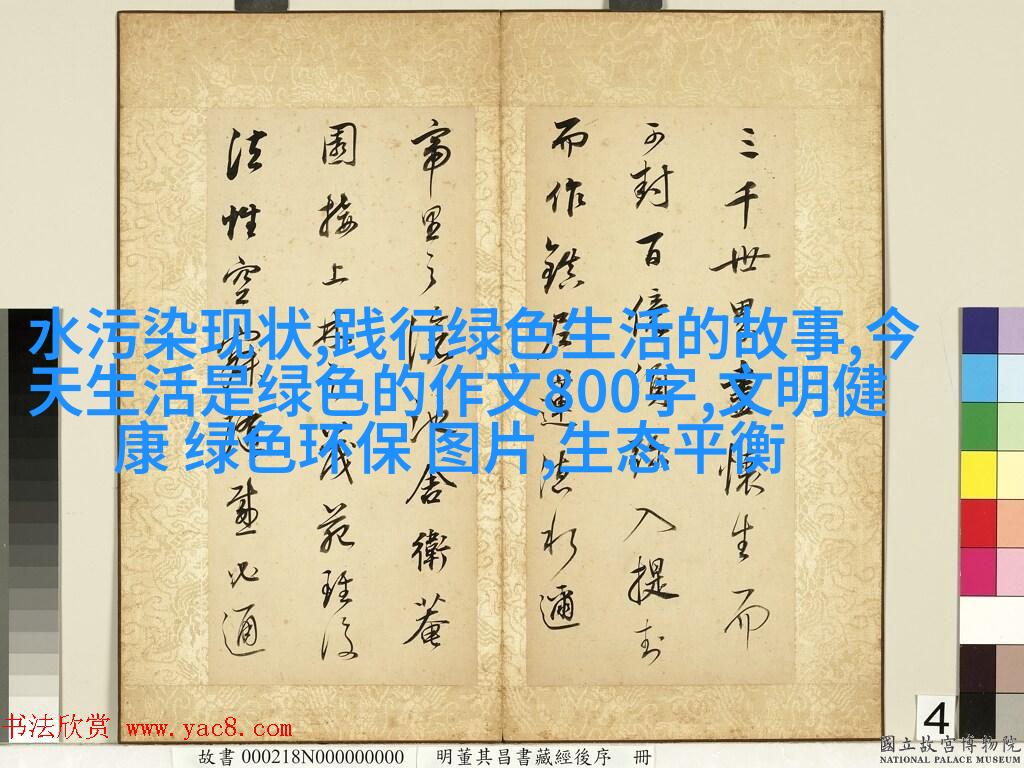 三千世界盡懷生而
可封百億須彌入提封
而作鎮蓮法於彌
帝里之池舍衛菴
園接上林茂苑
法性空寂隨感必通
水污染现状,践行绿色生活的故事,今
天生活是绿色的作文800字,文明健
康 绿色环保 图片,生态平衡
书法欣赏 www.yac8.com
故書 000218N000000000 明董其昌書藏經後序 冊
4
國立故宮博物院
NATIONAL PALACE MUSEUM